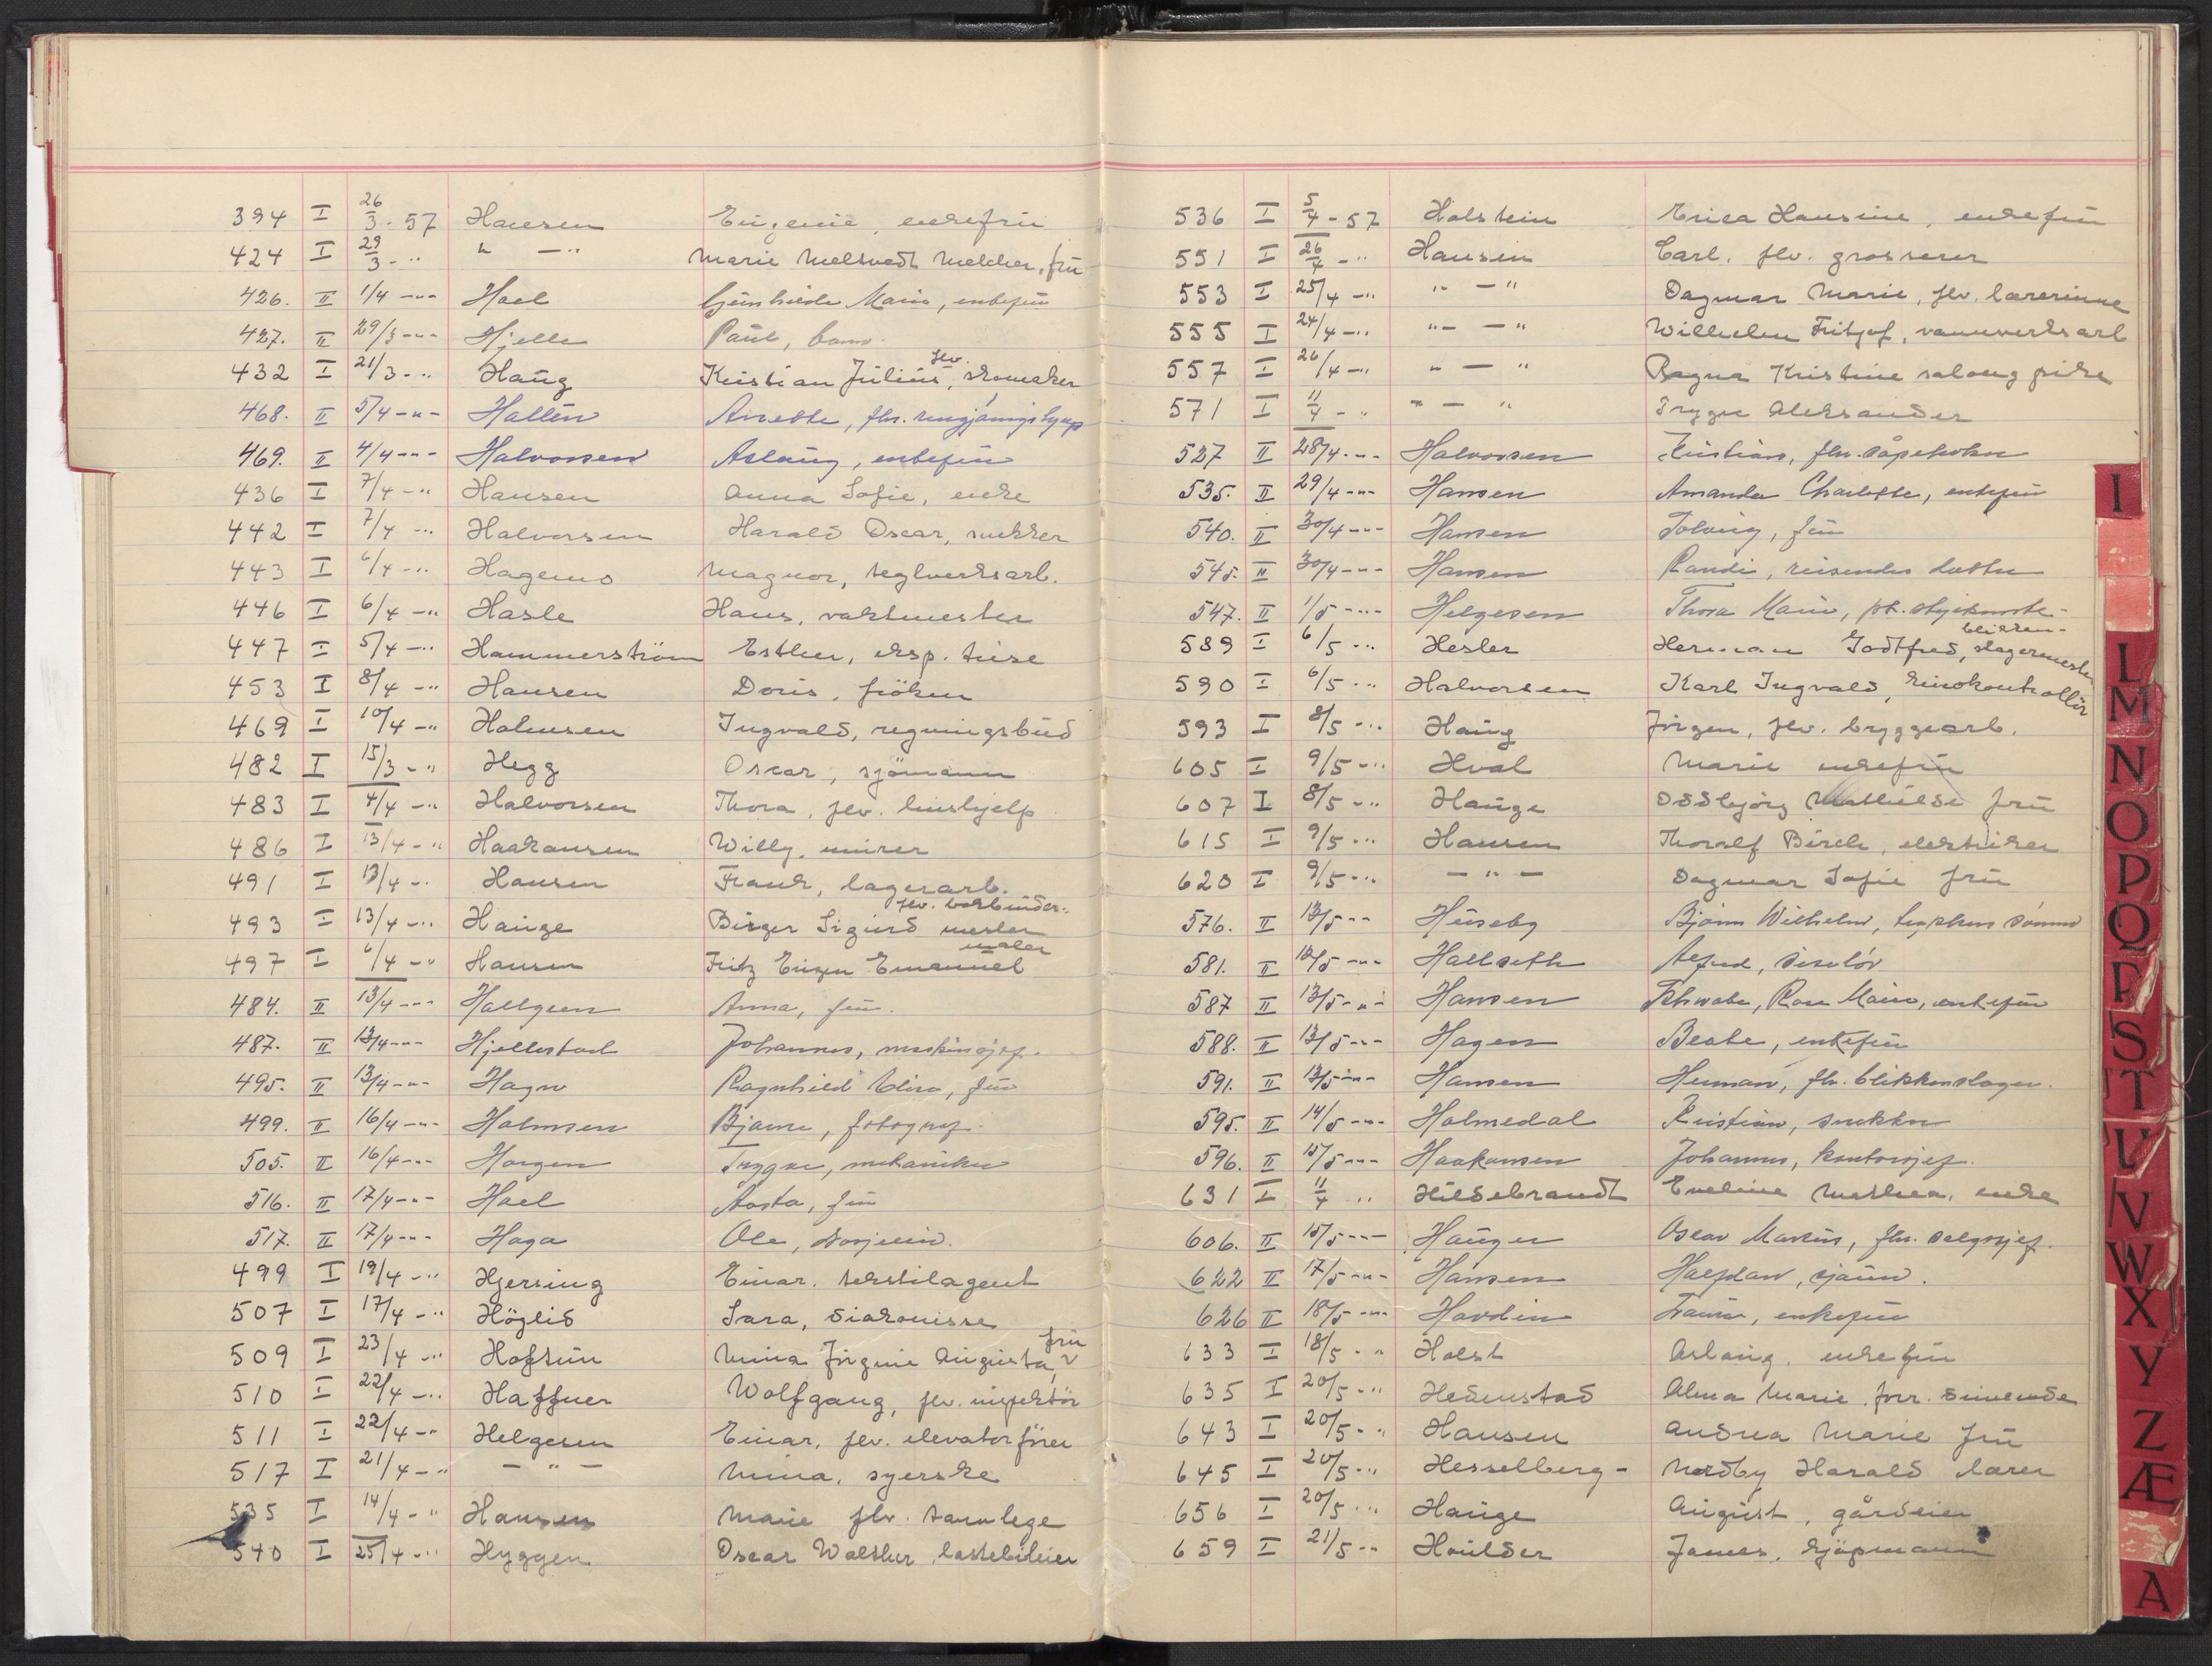 394 I 26/3 - 57 Hansen Eugenie, enkefru
424 I 29/3 - " " — " Marie Meltvedt Melcher, fru
426. II 1/4 -"- Hoel Gunhilda Marie, enkefru
427. II 29/3 -"- Hjelle Paul, barn.
432 I 21/3 - " Haug Kristian Julius, flv. skomaker
468. II 5/4 -"- Hallén Anette, flv. rengjøringshjelp
469. II 4/4 -"- Halvorsen Aslaug, enkefru
436 I 7/4 - " Hansen Anna Sofie, enke
442 I 7/4 - " Halvorsen Harald Oscar, snekker
443 I 6/4 - " Hagemo Magnor, teglverksarb.
446 I 6/4 - " Hasle Hans, vaktmester
447 I 5/4 - " Hammerström Esther, eksp. trise
453 I 8/4 - " Hansen Doris, fröken
469 I 10/4 - " Holmsen Ingvald, regningsbud
482 I 15/3 - " Hegg Oscar, sjömann
483 I 4/4 - " Halvorsen Thora, flv. hushjelp
486 I 13/4 - " Haakansen Willy, murer
491 I 13/4 - " Hansen Frank, lagerarb.
493 I 13/4 - " Hauge Birger Sigurd flv. bokbinder- mester
497 I 6/4 - " Hansen Fritz Eugen Emanuel maler
484. II 13/4 -"- Hallgren Anna, fru.
487. II 13/4 -"- Hjellestad Johannes, maskinsjef.
495. II 13/4 -"- Hagen Ragnhild Elise, fru
499. II 16/4 -"- Holmsen Bjarne, fotograf.
505. II 16/4 -"- Horgen Trygve, mekaniker
516. II 17/4 -"- Hoel Aasta, fru
517. II 17/4 -"- Haga Ole,
499 I 19/4 - " Hjersing Einar, tekstilagent
507 I 17/4 - " Höglid Sara, diakonisse
509 I 23/4 - " Hoftun Mina Jörgine Augusta, fru
510 I 22/4 - " Haffner Wolfgang, flv. inspektör
511 I 22/4 - " Helgesen Einar, flv. elevatorförer
517 I 21/4 - " — " — Mina, syerske
535 I 14/4 - " Hansen Marie flv. tannlege
540 I 25/4 - " Hyggen Oscar Walther, lastebileier
536 I 5/4 - 57 Holstein Erica Hansine, enkefru
551 I 26/4 - " Hansen Carl, flv. grosserer
553 I 25/4 - " " — " Dagmar Marie, flv. lærerinne
555 I 24/4 - " " — " Wilhelm Fritjof, vannverksarb
557 I 26/4 - " " — " Ragna Kristine salongpike
571 I 11/4 - " " — " Trygve Aleksander
527 II 28/4 -"- Halvorsen Kristian, flv. såpekoker
535. II 29/4 -"- Hansen Amanda Charlotte, enkefru
540. II 30/4 -"- Hansen Solveig, fru
545. II 30/4 -"- Hansen Randi, reisendes datter
547. II 1/5 -"- Helgesen Thora Marie,
589 I 6/5 - " Hesler Herman Godtfred, blikken- slagermester
590 I 6/5 - " Halvorsen Karl Ingvald, kinokontrollör
593 I 8/5 - " Haug Jörgen, flv. bryggearb.
605 I 9/5 - " Hval Marie enkefru
607 I 8/5 - " Hauge Oddbjörg Mathilde fru
615 I 9/5 - " Hansen Thoralf Birch, elektriker
620 I 9/5 - " — " — Dagmar Sofie fru
576. II 13/5 -"- Huseby Bjørn Wilhelm, sønn
581. II 12/5 -"- Hallseth Alfred, disponør
587 II 13/5 -"- Hansen Schwabe, Rosa Marie, enkefru
588. II 13/5 -"- Hagen Beate, enkefru
591. II 13/5 -"- Hansen Herman, flv. blikkenslager.
595. II 14/5 -"- Holmedal Kristian, snekker
596. II 15/5 -"- Haakonsen Johannes, kontorsjef.
631 I 11/4 " Hildebrandt Eveline Mathea, enke
606. II 15/5 -"- Hauger Oscar Marius, flv. salgssjef.
622 II 17/5 -"- Hansen Halfdan, sjåfør.
626 II 18/5 -"- Hordin enkefru
633 I 18/5 - " Holst Aslaug, enkefru
635 I 20/5 - " Hedenstad Alma Marie, forr. drivende
643 I 20/5 - " Hansen Andrea Marie fru
645 I 20/5 - " Hesselberg - Nordby Harald lærer
656 I 20/5 - " Hauge August, gårdeier
659 I 21/5 - " Houlder James, kjöpmann
I
L
M
N
O
P
Q
R
S
T
U
V
W
X
Y
Z
Æ
A